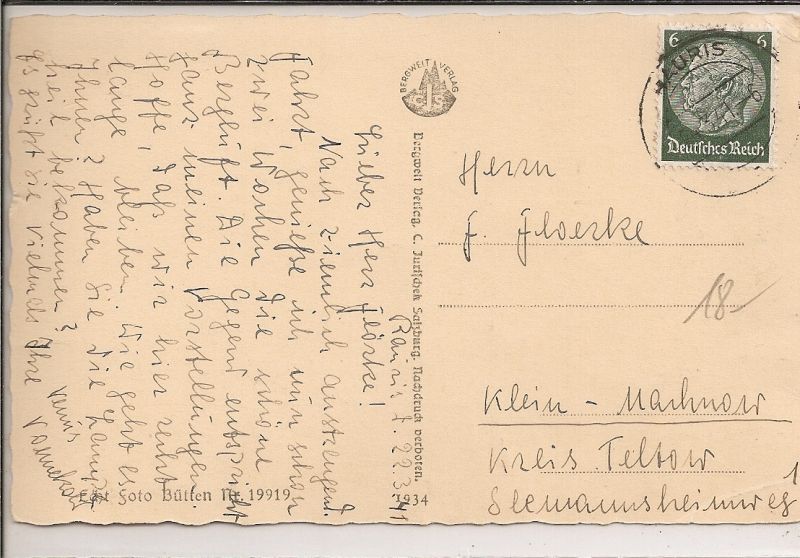 Rauris, d. 22.3.41
Lieber Herr Flörke!
Nach ziemlich anstrengend.
Fahrt, genieße ich nun schon
zwei Wochen die schöne
Bergluft. Die Gegend entspricht
ganz meinen Vorstellungen.
Hoffe, daß wir hier recht
lange bleiben. Wie geht es
Ihnen? Haben Sie die Lampe
heil bekommen?
Es grüßt Sie vielmals Ihre
BERGWELT VERLAG
Bergwelt Verlag, C. Jurischek Salzburg. Nachdruck verboten.
Echt Foto Bütten Nr. 19919
1934
RAURIS
6 6
Deutsches Reich
Herrn
F. Floerke
18-
Klein-Machnow
Kreis Teltow
Seemannsheimweg 1